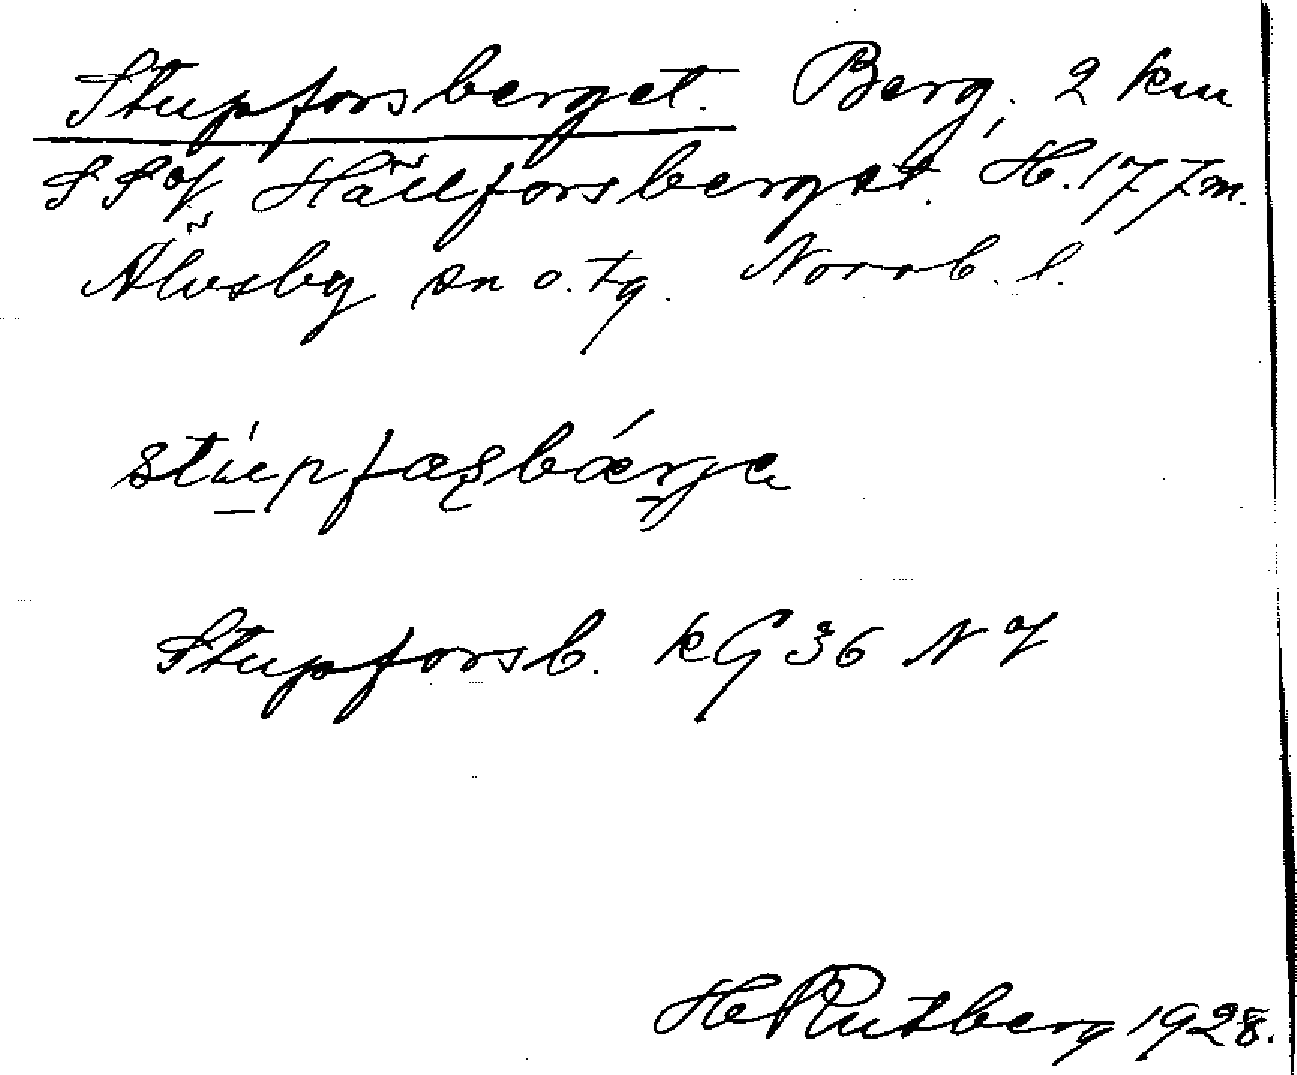 Stupforsberget. Berg, 2 km
SSV Hällforsberget. H. 177 m.
Älvsby sn o. tg. Norrb. l.
Stupforsb. kG 36 NV
H Rutberg 1928.